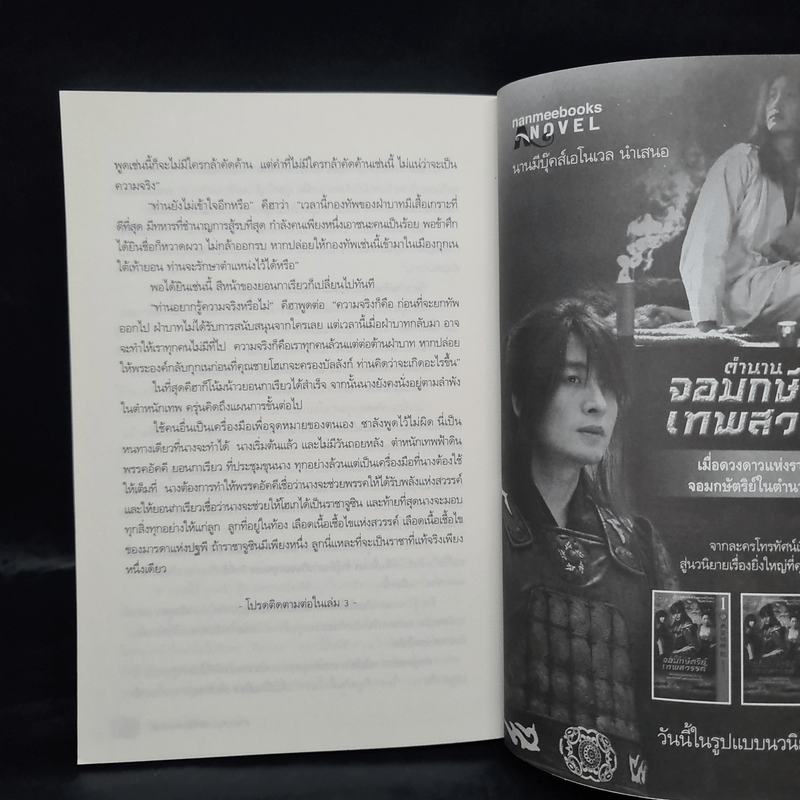 พูดเช่นนี้ก็จะไม่มีใครกล้าคัดค้าน แต่คำที่ไม่มีใครกล้าคัดค้านเช่นนี้ ไม่แน่ว่าจะเป็น
ความจริง"
"ท่านยังไม่เข้าใจอีกหรือ" คีฮาว่า "เวลานี้กองทัพของฝ่าบาทมีเสื้อเกราะที่
ดีที่สุด มีทหารที่ชำนาญการสู้รบที่สุด กำลังคนเพียงหนึ่งเอาชนะคนเป็นร้อย พอข้าศึก
ได้ยินชื่อก็หวาดผวา ไม่กล้าออกรบ หากปล่อยให้กองทัพเช่นนี้เข้ามาในเมืองกุกเน
ใต้เท้ายอน ท่านจะรักษาตำแหน่งไว้ได้หรือ"
พอได้ยินเช่นนี้ สีหน้าของยอนกาเรียวก็เปลี่ยนไปทันที
"ท่านอยากรู้ความจริงหรือไม่" คีฮาพูดต่อ "ความจริงก็คือ ก่อนที่จะยกทัพ
ออกไป ฝ่าบาทไม่ได้รับการสนับสนุนจากใครเลย แต่เวลานี้เมื่อฝ่าบาทกลับมา อาจ
จะทำให้เราทุกคนไม่มีที่ไป ความจริงก็คือเราทุกคนล้วนแต่ต่อต้านฝ่าบาท หากปล่อย
ให้พระองค์กลับกุกเนก่อนที่คุณชายโฮเกจะครองบัลลังก์ ท่านคิดว่าจะเกิดอะไรขึ้น"
ในที่สุดคีฮาก็โน้มน้าวยอนกาเรียวได้สำเร็จ จากนั้นนางยังคงนั่งอยู่ตามลำพัง
ในตำหนักเทพ ครุ่นคิดถึงแผนการขั้นต่อไป
ใช้คนอื่นเป็นเครื่องมือเพื่อจุดหมายของตนเอง ซาลังพูดไว้ไม่ผิด นี่เป็น
หนทางเดียวที่นางจะทำได้ นางเริ่มต้นแล้ว และไม่มีวันถอยหลัง ตำหนักเทพฟ้าดิน
พรรคอัคคี ยอนกาเรียว ที่ประชุมขุนนาง ทุกอย่างล้วนแต่เป็นเครื่องมือที่นางต้องใช้
ให้เต็มที่ นางต้องการทำให้พรรคอัคคีเชื่อว่านางจะช่วยพรรคให้ได้รับพลังแห่งสวรรค์
และให้ยอนกาเรียวเชื่อว่านางจะช่วยให้โฮเกได้เป็นราชาจูซิน และท้ายที่สุดนางจะมอบ
ทุกสิ่งทุกอย่างให้แก่ลูก ลูกที่อยู่ในท้อง เลือดเนื้อเชื้อไขแห่งสวรรค์ เลือดเนื้อเชื้อไข
ของมารดาแห่งปฐพี ถ้าราชาจูซินมีเพียงหนึ่ง ลูกนี่แหละที่จะเป็นราชาที่แท้จริงเพียง
หนึ่งเดียว
- โปรดติดตามต่อในเล่ม 3 -
nanmeebooks
NOVEL
นานมีบุ๊คส์เอโนเวล นำเสนอ
ตำนาน
จอมกษั
เทพสว
เมื่อดวงดาวแห่งรา
จอมกษัตริย์ในตำนา
จากละครโทรทัศน์
สู่นวนิยายเรื่องยิ่งใหญ่ที่
1
จอมกษัตริย์
เทพสวรรค์
วันนี้ในรูปแบบนวนิ